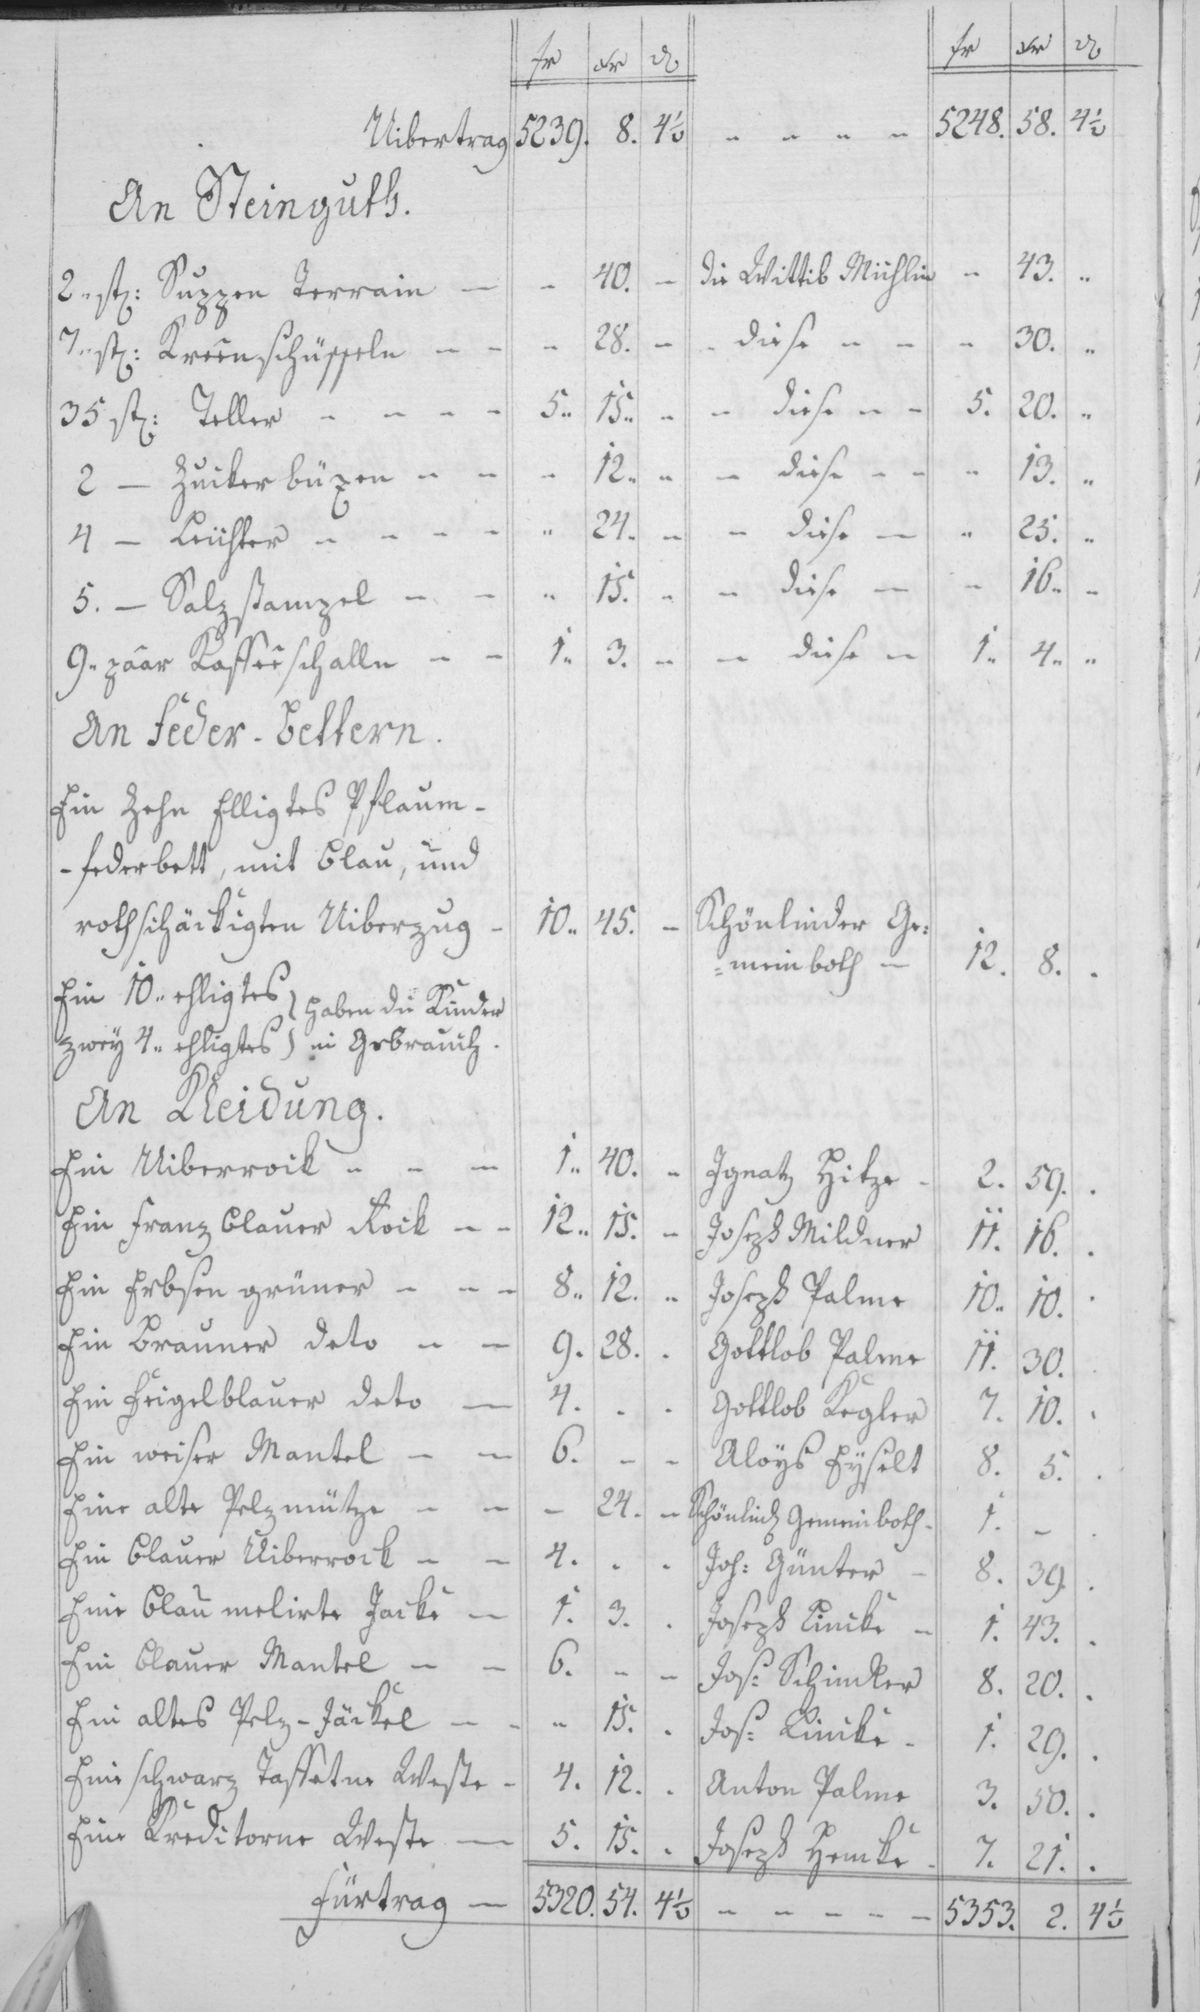 fr xr ₰ fr xr ₰
Uibertrag 5239. 8. 4½ - - - - 5248. 58. 4½
An Steinguth.
2 „ st: Suppen Terrain - - 40. - die Wittib Michlin - 43. „
7 „ st: Kreenschüsseln - - - 28. - - diese - - - 30. „
35 st: Teller - - - - 5„ 15„ - - diese - - 5. 20. „
2 - Zuikerbüxen - - - 12„ - - diese - - - 13. „
4 - Leichter - - - - „ 24. - - diese - „ 25. „
5. - Salzstampel - - „ 15. - - diese - - 16„ -
9„ paar Kaffeeschalln - - 1„ 3. - - diese - 1„ 4„ „
An Feder-Bettern.
Ein Zehn Elligtes Pflaum-
-federbett, mit blau, und
rothschäckigten Uiberzug - 10„ 45. - Schönlinder Ge:
=meinboth - 12. 8. .
Ein 10„ ehligtes } haben die Kinder
zwey 4„ ehligtes } in Gebrauch.
An Kleidung.
Ein Uiberroik - - - 1„ 40. „ Ignatz Hitze - 2. 59. .
Ein Franz blauer Roik - - 12„ 15. - Joseph Mildner 11. 16. .
Ein Erbsen grüner - - - 8„ 12. „ Joseph Palme 10„ 10. .
Ein Brauner deto - - 9. 28. . Gottlob Palme 11. 30.
Ein Feigelblauer deto - 4. . . Gottlob Kegler 7. 10. .
Ein weiser Mantel - - 6. - - Aloys Eyselt 8. 5. .
Eine alte Pelzmütze - - - 24. - Schönlind Gemeinboth - 1. - .
Ein blauer Uiberrock - - 4. . . Joh: Günter - 8. 39. .
Eine blau melirte Jacke - 1. 3. . Joseph Lincke - 1. 43. .
Ein blauer Mantel - - 6. - - Jos: Schindler 8. 20. .
Ein altes Pelz-Jäckel - - „ 15. . Jos: Lincke - 1. 29. .
Eine schwarz Taffetne Weste - 4. 12. . Anton Palme 3. 50. .
Eine Kreditorne Weste - 5. 15. . Joseph Hencke - 7. 21. .
Fürtrag - 5320. 54. 4½ - - - - - 5353. 2. 4½